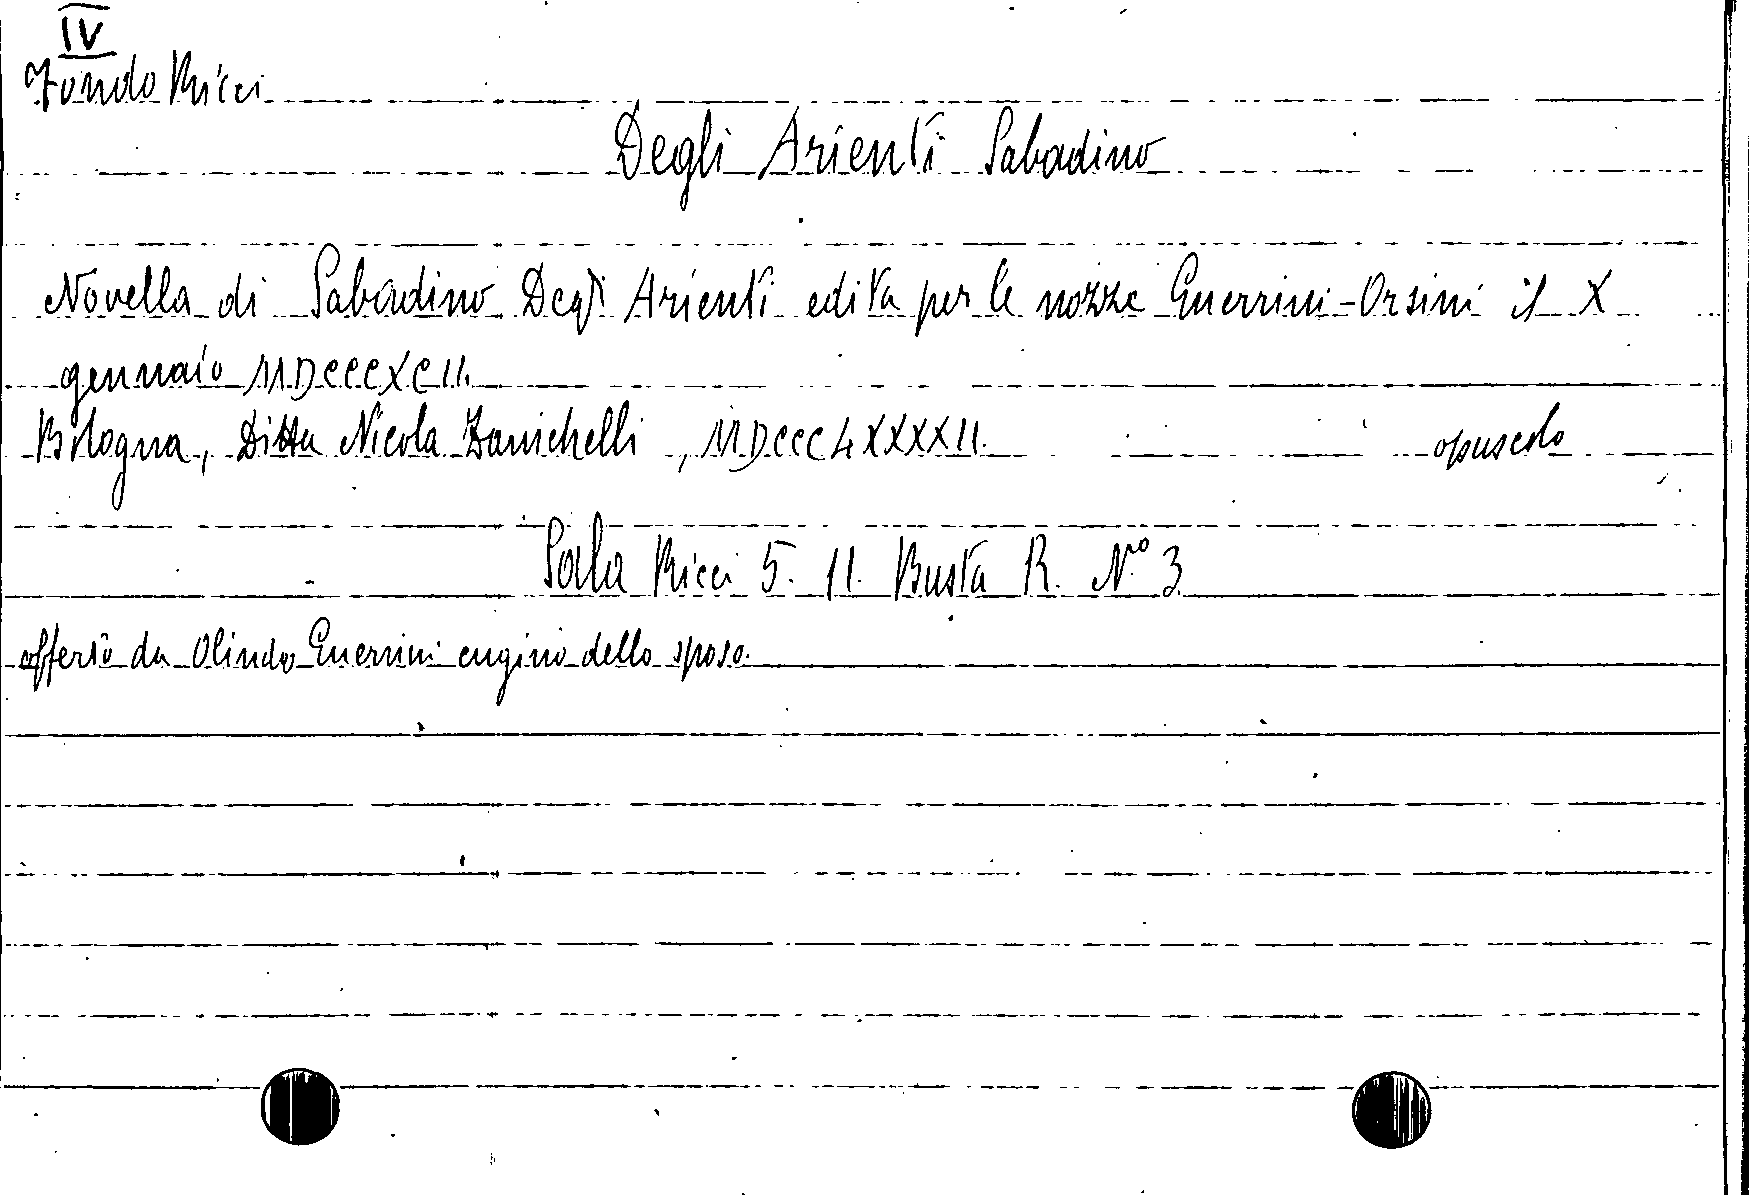 IV
Fondo Ricci
Degli Arienti Sabadino
Novella di Sabadino Degli Arienti edita per le nozze Guerrini-Orsini il X
gennaio MDCCCXCII.
Bologna, Ditta Nicola Zanichelli, MDCCCLXXXXII. opuscolo
Sala Ricci 5. 11. Busta R. N° 3
offerto da Olindo Guerrini cugino dello sposo.